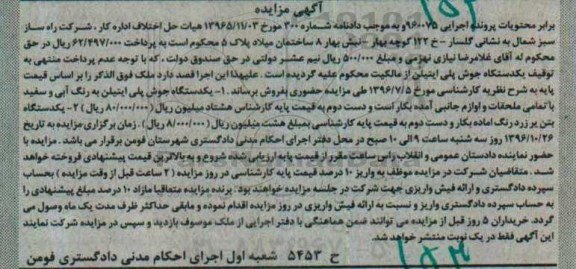 ۱۵۲
آگهی مزایده
برابر محتویات پرونده اجرایی ۹۶۰۰۷۵ و به موجب دادنامه شماره ۳۰۰ مورخ ۱۳۹۶۵/۱۱/۰۳ هیات حل اختلاف اداره کار ، شرکت راه ساز
سبز شمال به نشانی گلسار - خ ۱۲۲ کوچه بهار - نبش بهار ۸ ساختمان میلاد پلاک ۵ محکوم است به پرداخت ۶۲/۴۹۷/۰۰۰ ریال در حق
محکوم له آقای غلامرضا نیازی نهزمی و مبلغ ۵۰۰/۰۰۰ ریال نیم عشر دولتی در حق صندوق دولت ، که با توجه عدم پرداخت منتهی به
توقیف یکدستگاه جوش پلی ایتیلن از مالکیت محکوم علیه گردیده است . علیهذا این اجرا قصد دارد ملک فوق الذکر را بر اساس قیمت
پایه به شرح نظریه کارشناسی مورخ ۱۳۹۶/۷/۵ طی مزایده حضوری بفروش برساند . ۱- یکدستگاه جوش پلی ایتیلن به رنگ آبی و سفید
با تمامی ملحقات و لوازم جانبی آماده بکار است و دست دوم به قیمت پایه کارشناس هشتاد میلیون ریال (۸۰/۰۰۰/۰۰۰ ریال ) ۲ - یکدستگاه
بتن یر زرد رنگ اماده بکار و دست دوم به قیمت پایه کارشناسی بمبلغ هشت میلیون ریال (۸/۰۰۰/۰۰۰ ریال ) . زمان برگزاری مزایده به تاریخ
۱۳۹۶/۱۰/۲۶ روز سه شنبه ساعت ۹ الی ۱۰ صبح در محل دفتر اجرای احکام مدنی دادگستری شهرستان فومن برقرار می باشد . مزایده با
حضور نماینده دادستان عمومی و انقلاب راس ساعت مقرر از قیمت پایه ارزیابی شده شروع و به بالاترین قیمت پیشنهادی فروخته خواهد
شد . متقاضیان شرکت در مزایده موظف به واریز ۱۰ درصد قیمت پایه کارشناسی در روز مزایده ( ۲ ساعت قبل از وقت مزایده ) بحساب
سپرده دادگستری و ارائه فیش واریزی جهت شرکت در جلسه مزایده خواهند بود . برنده مزایده متعاقبا مازاد ۱۰ درصد مبلغ پیشنهادی را
به حساب سپرده دادگستری واریز و نسبت به ارائه فیش واریزی در روز مزایده اقدام نموده و مابقی حداکثر ظرف مدت یک ماه وصول می
گردد. خریداران ۵ روز قبل از مزایده می توانند ضمن هماهنگی با دفتر اجرایی از ملک موصوف بازدید و سپس در مزایده شرکت نمایند
این آگهی فقط در یک نوبت منتشر خواهد شد.
ح ۵۴۵۳ شعبه اول اجرای احکام مدنی دادگستری فومن